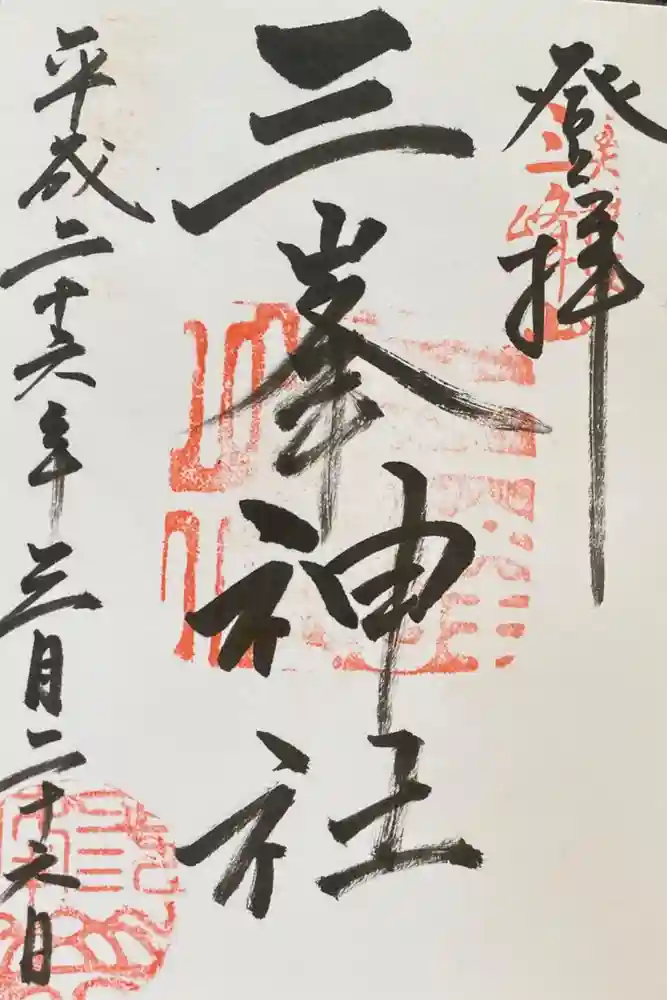 登拝
三峰
三峯神社
平成二十六年三月二十六日